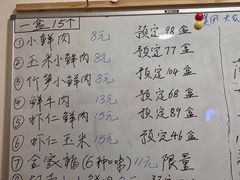 一盒15个
①小鲜肉 8元 预定98盒
②玉米小鲜肉 8元 预定77盒
③竹笋小鲜肉 8元 预定104盒
④鲜牛肉 13元 预定68盒
⑤虾仁鲜肉 15元 预定89盒
⑥虾仁玉米 15元 预定46盒
⑦全家福(6种口味) 11元 限量